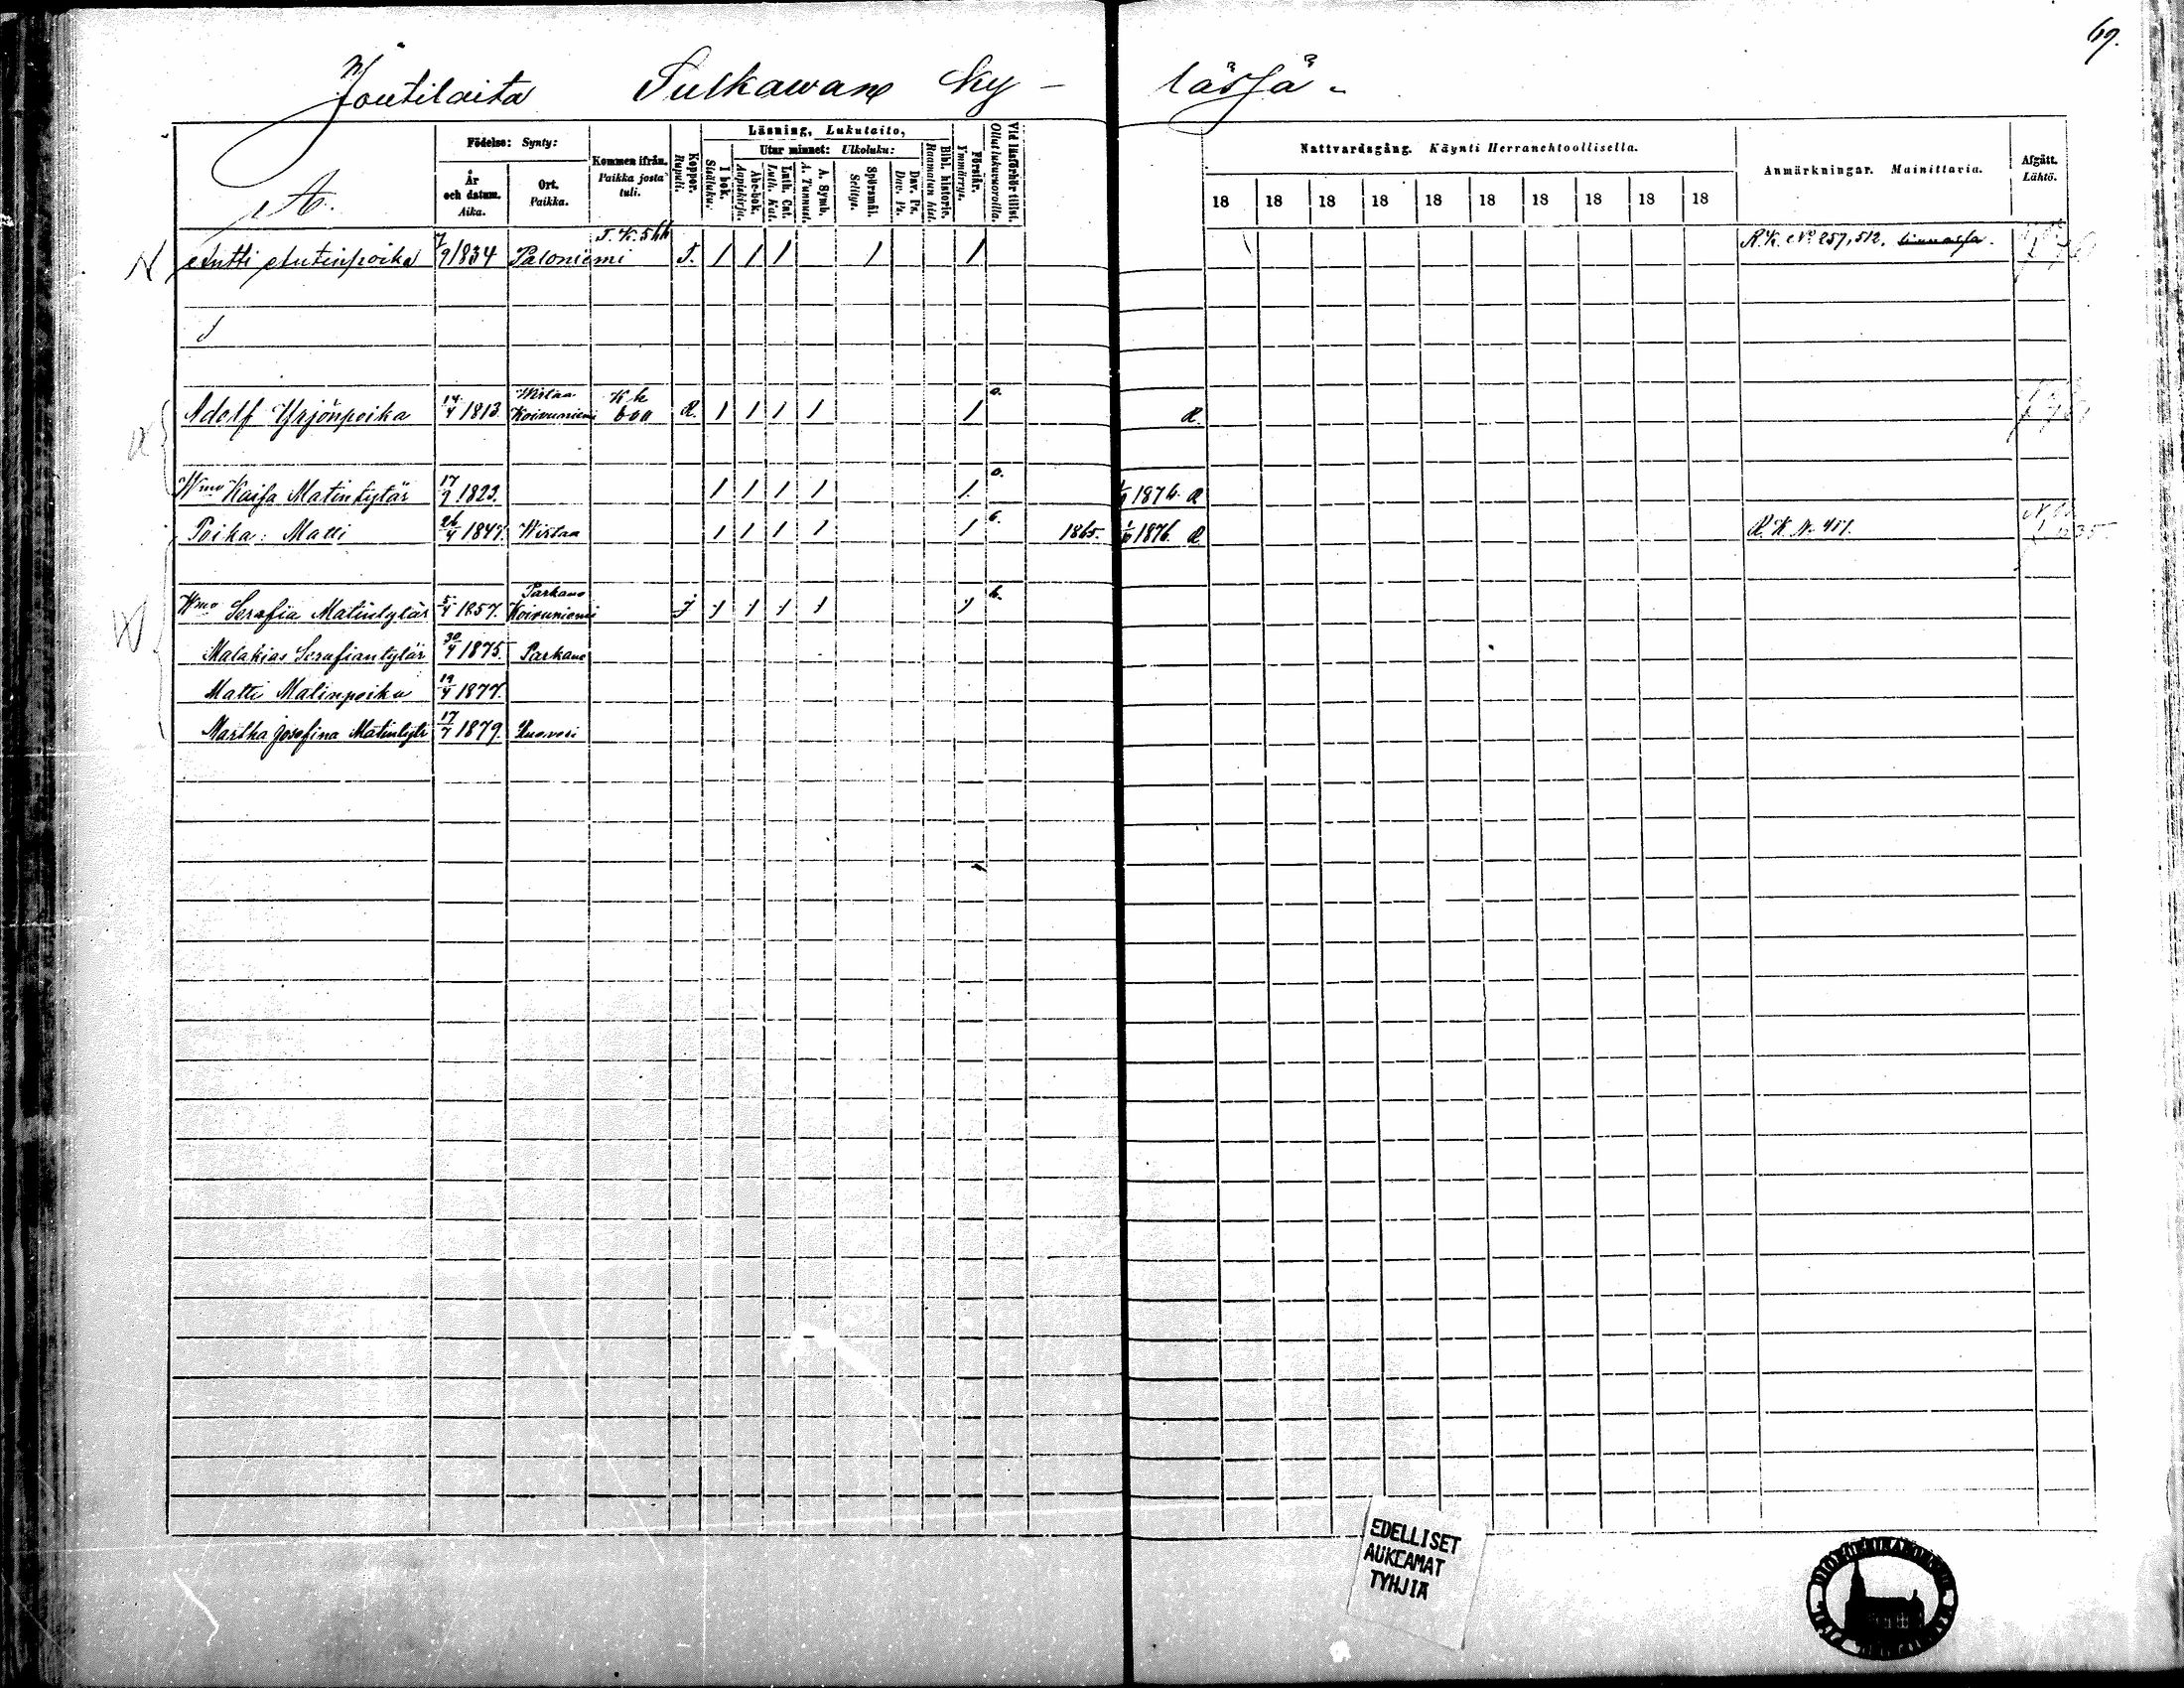 69.
Joutilaita Sulkawan Ky-lässä.
Födelse: Synty:
Kommen ifrån. Paikka josta tuli.
Koppor. Rupuli.
Läsning, Lukutaito,
Utur minnet: Ulkoluku:
År och datum. Aika.
Ort. Paikka.
I bok. Sisäluku.
Abc-bok. Aapiskirja.
Luth. Cat. Luth. Kat.
A. Symb. A. Tunnust.
Spörsmål. Selitys.
Dav. Ps. Dav. Ps.
Bibl. historie. Raamatun hist.
Förstår. Ymmärrys.
Vid läsförhör tillst. Ollut lukuvuoroilla.
Nattvardsgång. Käynti Herranehtoollisella.
Anmärkningar. Mainittavia.
Afgått. Lähtö.
18 18 18 18 18 18 18 18 18 18
A.
Antti Antinpoika 7/9 1834 Paloniemi T. K. 544 T. 1 1 1 1 1 R.K. No 257, 512. linnassa.
Adolf Yrjönpoika 14/4 1813. Wirtaa Koivuniemi K k 600 R. 1 1 1 1 1 R.
Wmo Kaisa Matintytär 17/9 1823. 1 1 1 1 1 1874. R
Poika: Matti 26/4 1847. Wirtaa 1 1 1 1 1 1865. 1876. R R. K. No 417.
Wmo Serafia Matintytär 5/4 1857. Parkano Koivuniemi j 1 1 1 1 1
Malakias Serafiantytär 30/4 1875. Parkano
Matti Matinpoika 19/4 1877.
Martha Josefina Matintytr 17/7 1879. Kuovesi
EDELLISET
AUKEAMAT
TYHJIÄ